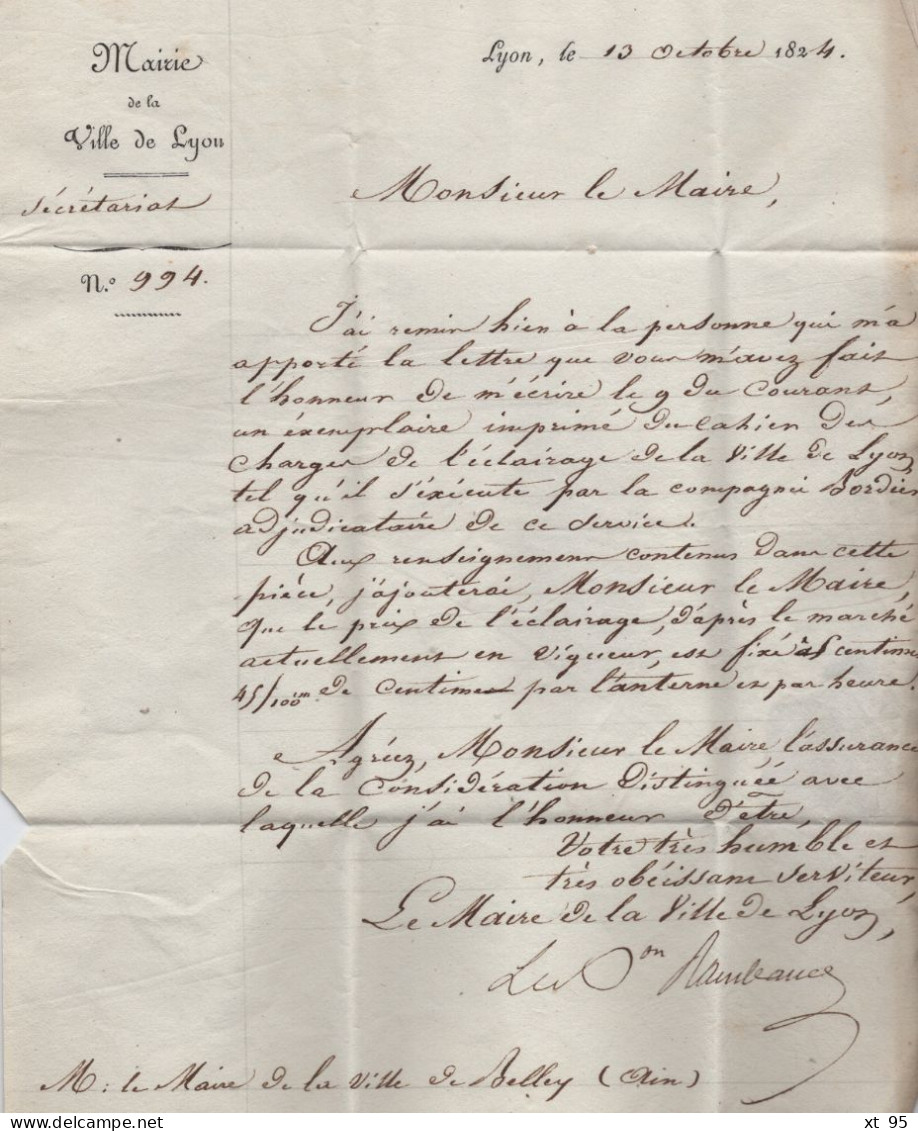 Mairie
de la
Ville de Lyon
Sécrétariat
N.º 994.
Lyon, le 13 Octobre 1824.
Monsieur le Maire,
J'ai remis hier à la personne qui m'a
apporté la lettre que vous m'avez fait
l'honneur de m'écrire le 9 du Courant,
un éxemplaire imprimé du Cahier des
Charges de l'éclairage de la Ville de Lyon,
tel qu'il s'éxécute par la compagnie Bordier
adjudicataire de ce service.
Aux renseignemens contenus dans cette
pièce, j'ajouterai, Monsieur le Maire,
que le prix de l'éclairage, d'après le marché
actuellement en vigueur, est fixé à centimes
45/100mes de Centimes par lanterne et par heure.
Agréez, Monsieur le Maire l'assurance
de la Considération distinguée avec
laquelle j'ai l'honneur d'être,
Votre très humble et
très obéissant serviteur,
Le Maire de la Ville de Lyon,
Le Bon Rambaud
M: le Maire de la Ville de Belley (Ain)
xt 95